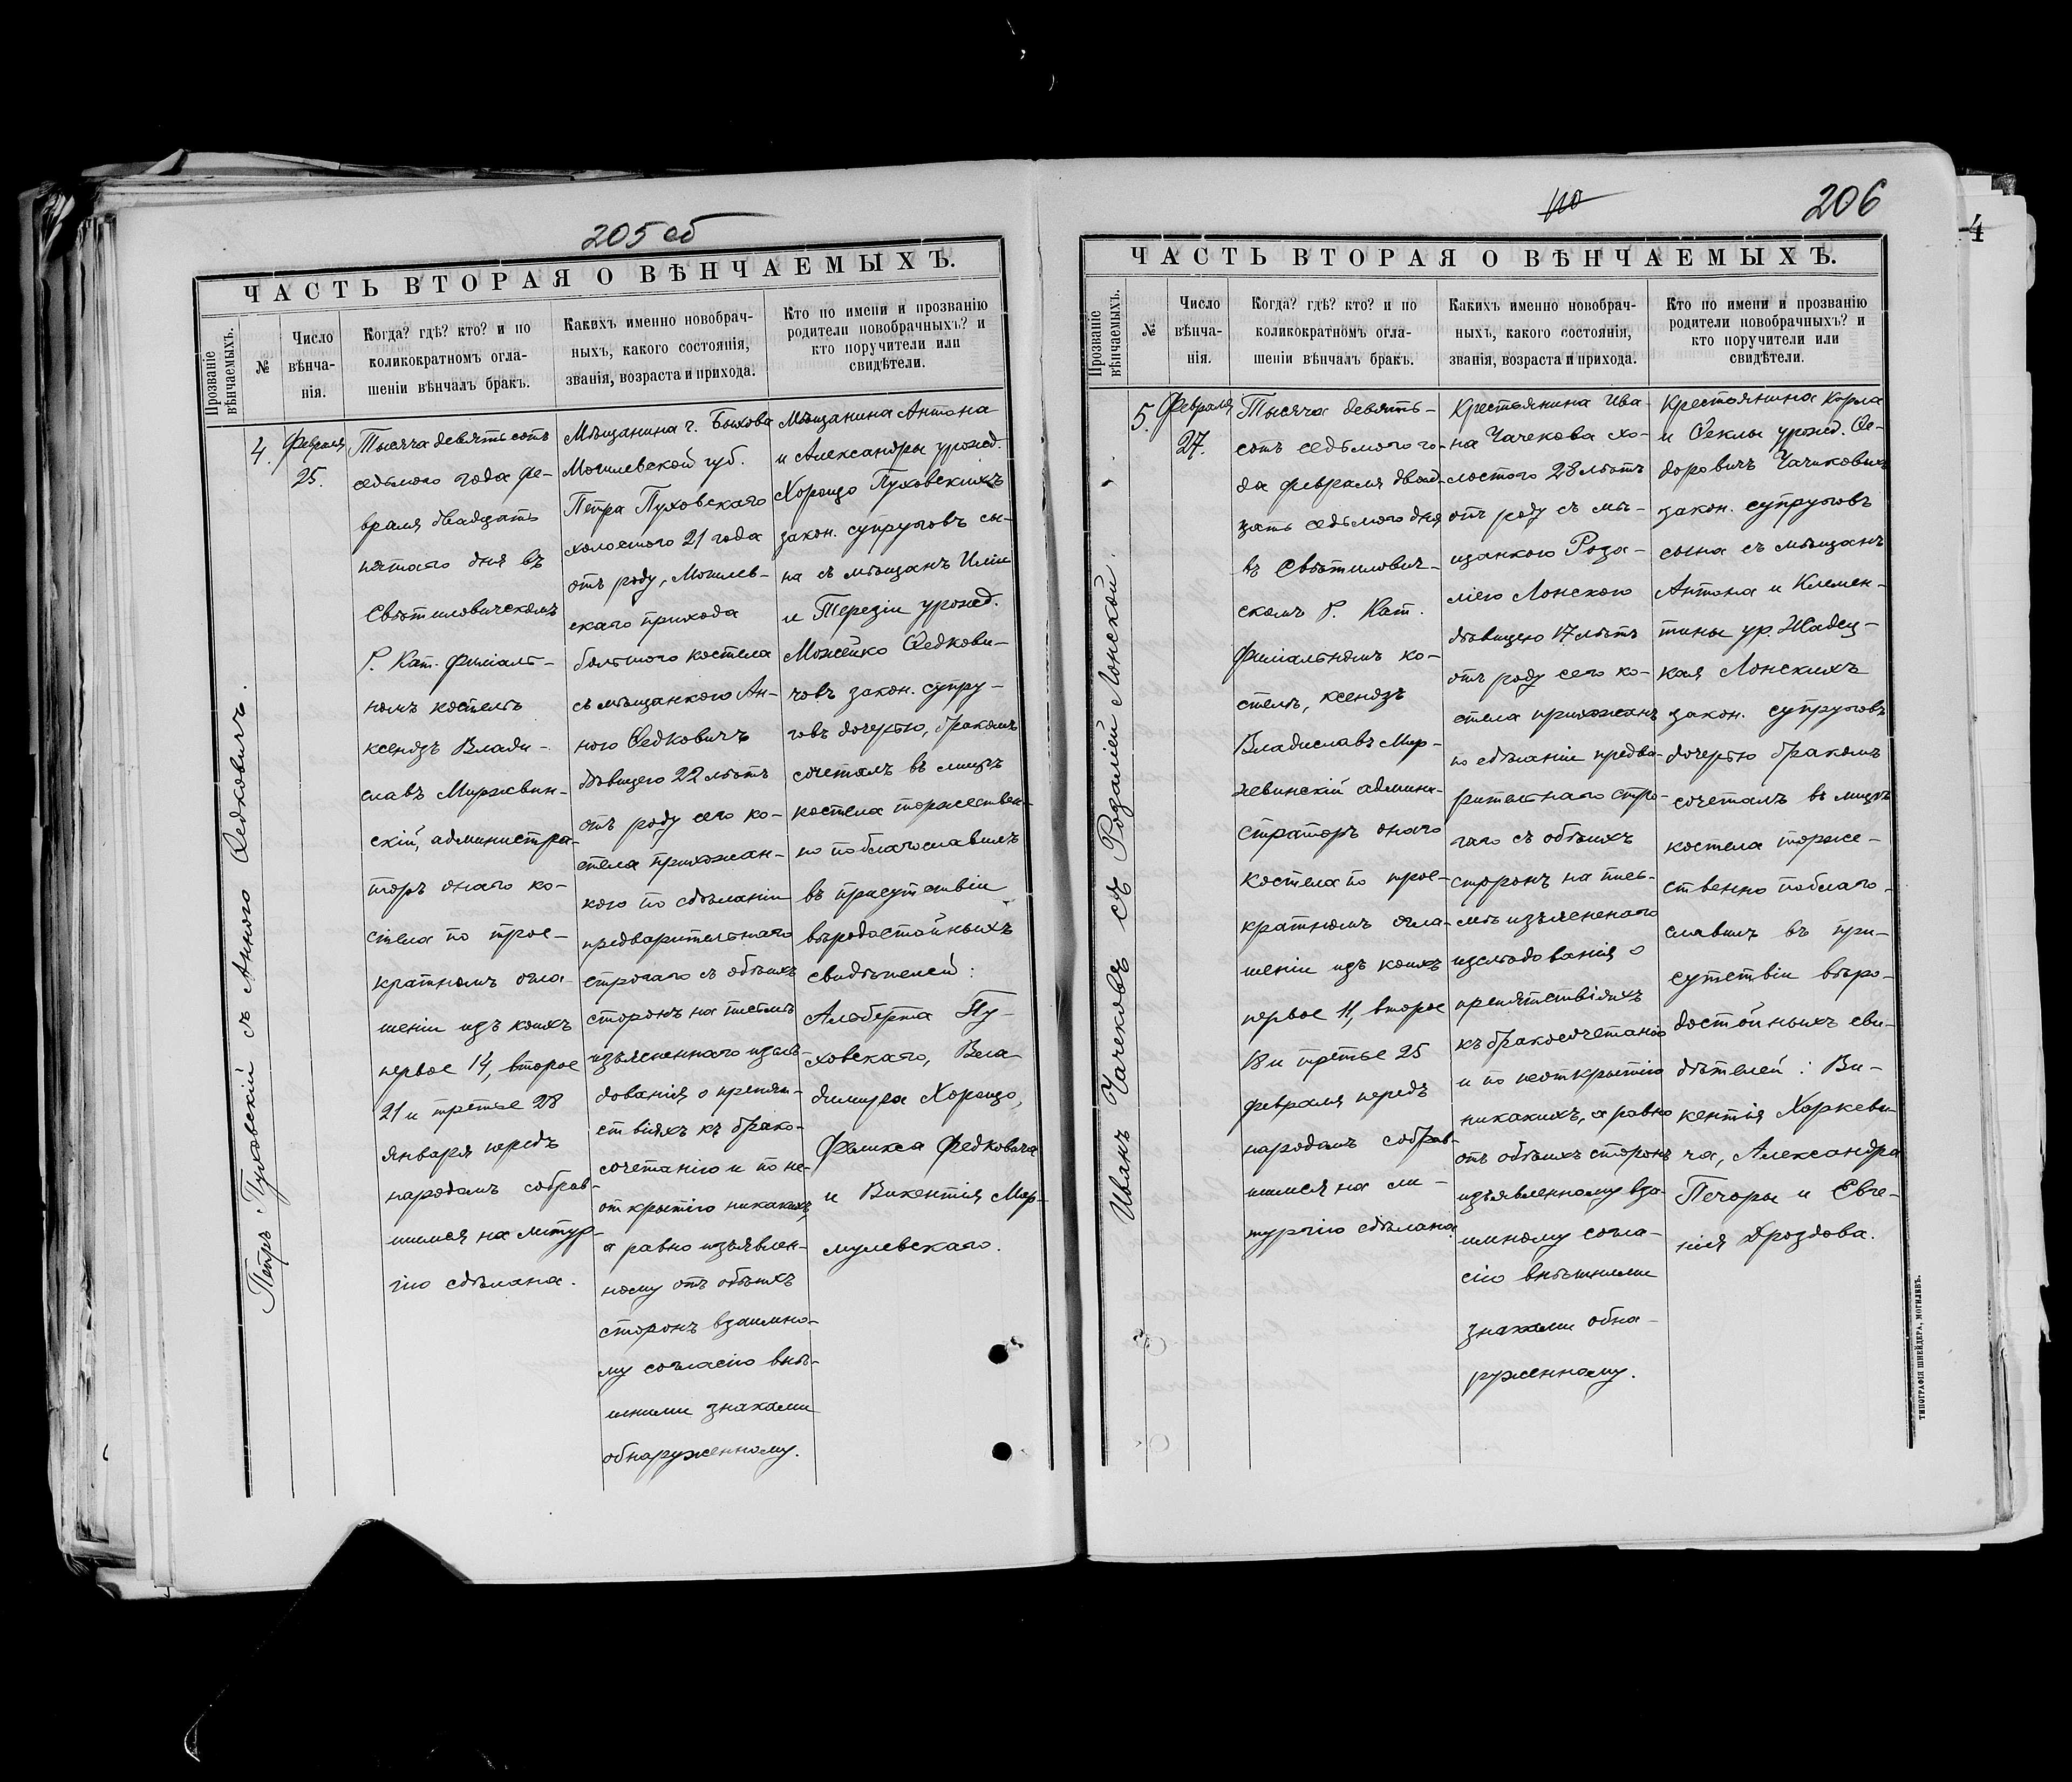 205 об
ЧАСТЬ ВТОРАЯ О ВѢНЧАЕМЫХЪ.
Прозваніе
вѣнчаемыхъ.
№
Число
вѣнча-
нія.
Когда? гдѣ? кто? и по
коликократномъ огла-
шеніи вѣнчалъ бракъ.
Какихъ именно новобрач-
ныхъ, какого состоянія,
званія, возраста и прихода.
Кто по имени и прозванію
родители новобрачныхъ? и
кто поручители или
свидѣтели.
Петръ Пуховскій съ Анною Ѳедковичъ.
4.
Февраля
25.
Тысяча девятьсотъ
седьмого года фе-
враля двадцать
пятаго дня въ
Свѣтиловическомъ
Р. Кат. филіаль-
номъ костелѣ
ксендзъ Влади-
славъ Миржвин-
скій, администра-
торъ онаго ко-
стела по трое-
кратномъ огла-
шеніи изъ коихъ
первое 14, второе
21 и третье 28
января передъ
народомъ собрав-
шимся на литур-
гію сдѣлана.
Мѣщанина г. Быхова
Могилевской губ.
Петра Пуховскаго
холостого 21 года
отъ роду, Могилев-
скаго прихода
большого костела
съ мѣщанкою Ан-
ною Ѳедковичъ
дѣвицею 22 лѣтъ
отъ роду сего ко-
стела прихожан-
кою по сдѣланіи
предварительнаго
строгаго съ обѣихъ
сторонъ на письмѣ
изъясненнаго изслѣ-
дованія о препят-
ствіяхъ къ брако-
сочетанію и по не-
открытію никакихъ,
а равно изъявлен-
ному отъ обѣихъ
сторонъ взаимно-
му согласію внѣ-
шними знаками
обнаруженному.
Мѣщанина Антона
и Александры урожд.
Хорощо Пуховскихъ
закон. супруговъ сы-
на съ мѣщанъ Иліи
и Терезіи урожд.
Можейко Ѳедкови-
човъ закон. супру-
говъ дочерью, бракомъ
сочеталъ въ лицѣ
костела торжествен-
но поблагославилъ
въ присутствіи
вѣродостойныхъ
свидѣтелей:
Альберта Пу-
ховскаго, Вла
димира Хорощо,
Феликса Федковича
и Викентія Мар-
мулевскаго.
206
ЧАСТЬ ВТОРАЯ О ВѢНЧАЕМЫХЪ.
Прозваніе
вѣнчаемыхъ.
№
Число
вѣнча-
нія.
Когда? гдѣ? кто? и по
коликократномъ огла-
шеніи вѣнчалъ бракъ.
Какихъ именно новобрач-
ныхъ, какого состоянія,
званія, возраста и прихода.
Кто по имени и прозванію
родители новобрачныхъ? и
кто поручители или
свидѣтели.
Иванъ Чачековъ съ Розаліей Лонской.
5.
Февраля
27.
Тысяча девять-
сотъ седьмого го-
да февраля двад-
цать седьмого дня
въ Свѣтилович-
скомъ Р. Кат.
филіальномъ ко-
стелѣ, ксендзъ
Владиславъ Мир-
жвинскій админи-
страторъ онаго
костела по трое-
кратномъ огла-
шеніи изъ коихъ
первое 11, второе
18 и третье 25
февраля передъ
народомъ собрав-
шимся на ли-
тургію сдѣлана.
Крестьянина Ива-
на Чачекова хо-
лостого 28 лѣтъ
отъ роду съ мѣ-
щанкою Роза-
ліею Лонскою
дѣвицею 17 лѣтъ
отъ роду сего ко-
стела прихожанъ
по сдѣланіи предва-
рительнаго стро-
гаго съ обѣихъ
сторонъ на пись-
мѣ изъясненаго
изслѣдованія о
препятствіяхъ
къ бракосочетанію
и по неоткрытію
никакихъ, а равно
отъ обѣихъ сторонъ
изъявленному вза-
имному согла-
сію внѣшними
знаками обна-
руженному.
Крестьянина Карла
и Ѳеклы урожд. Ѳе-
доровичъ Чачиковыхъ
закон. супруговъ
сына съ мѣщанъ
Антона и Клемен-
тины ур. Жадец-
кая Лонскихъ
закон. супруговъ
дочерью бракомъ
сочеталъ въ лицѣ
костела торже-
ственно поблаго-
славилъ въ при-
сутствіи вѣро-
достойныхъ сви-
дѣтелей: Ви-
кентія Харкеви-
ча, Александра
Печоры и Евге-
нія Дроздова.
ТИПОГРАФІЯ ШНЕЙДЕРА, МОГИЛЕВЪ.
4